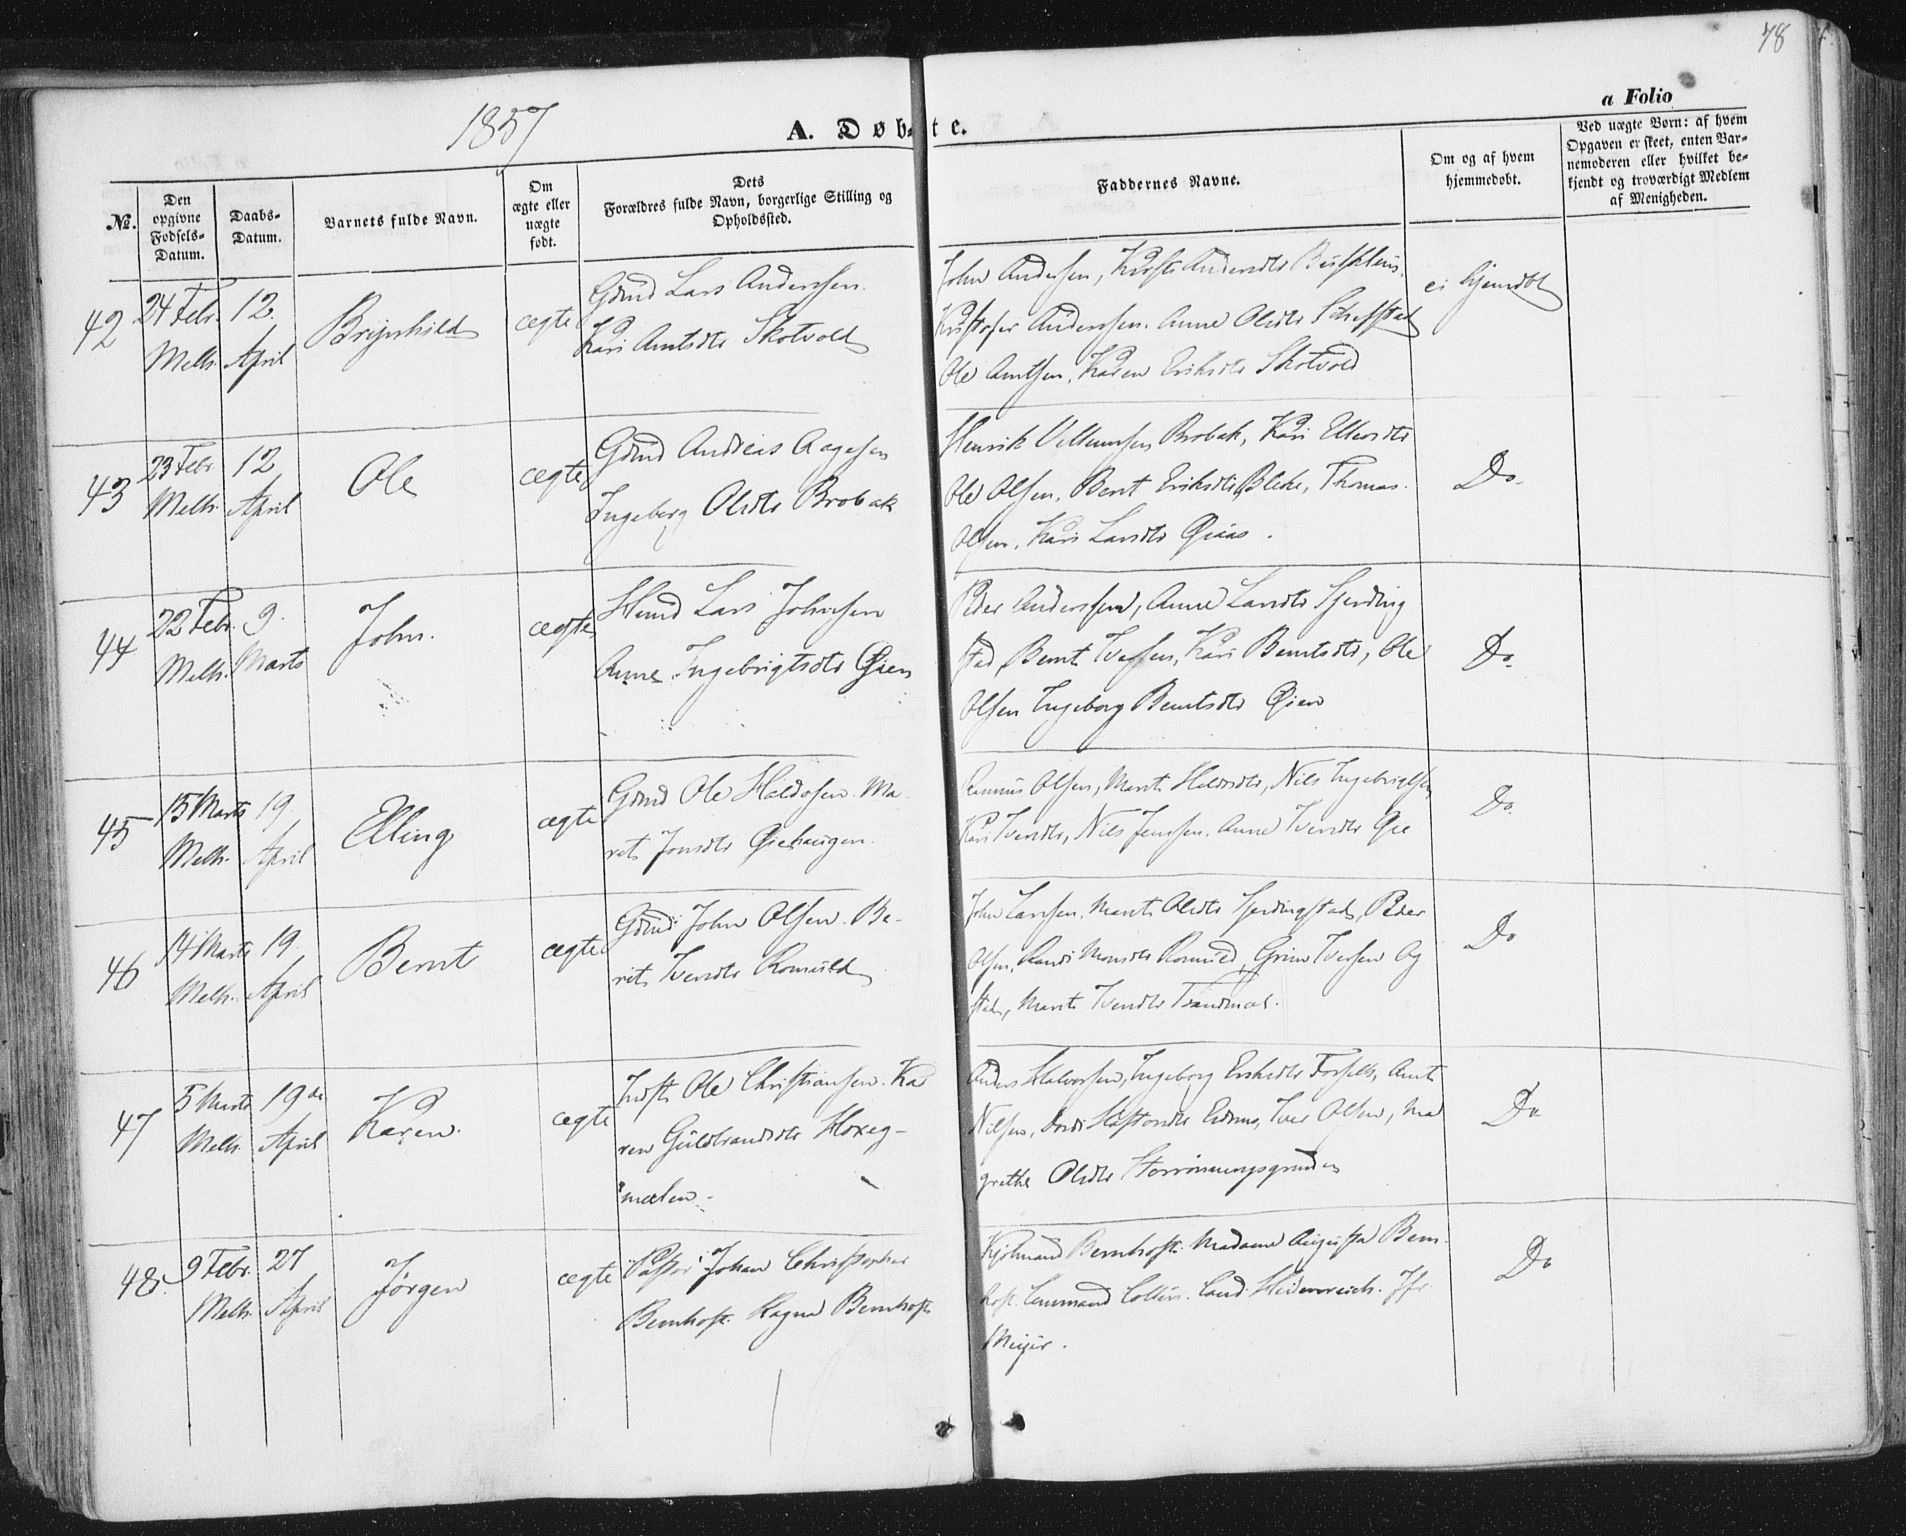 78
a Folio
1857
A. Døbte.
No.
Den opgivne Fødsels-Datum.
Daabs-Datum.
Barnets fulde Navn.
Om ægte eller uægte født.
Dets Forældres fulde Navn, borgerlige Stilling og Opholdssted.
Faddernes Navne.
Om og af hvem hjemmedøbt.
Ved uægte Børn: af hvem Opgaven er skeet, enten Barnemoderen eller hvilket bekjendt og troværdigt Medlem af Menigheden.
42
24 Febr.
Melh.
12.
April
Brynhild
ægte
Gdmd Lars Anderssen.
Kari Arntsdtr Skotvold
John Anderssen, Kirsti Andersdtr
Kristofer Anderssen. Anne Olsdtr
Ole Arntsen, Karen Eriksdtr Skotvold
ei hjemdbt
43
23 Febr
Melh.
12
April
Ole
ægte
Gdmd Andreas Aagesen
Ingeborg Olsdtr Brobak
Henrik Brobak, Kari Ellevsdtr
Ole Olsen, Berit Eriksdtr Bleke, Thomas
Olsen, Kari Larsdtr Øiaas.
Do.
44
22 Febr.
Melh.
9.
Marts
John.
ægte
Hmd Lars Johnsen
Anne Ingebrigtsdtr Øien
Peder Anderssen, Anne Larsdtr Gjerding
stad, Bernt Iversen, Kari Berntsdtr, Ole
Olsen Ingeborg Berntsdtr Øien
Do.
45
15 Marts
Melh.
19
April
Elling
ægte
Gdmd Ole Haldosen. Ma
rit Jonsdtr Øiehaugen.
Olsen, Marit Haldosdtr, Nils Ingebrigtsen,
Kari Iversdtr, Nils Jenssen. Anne Iversdtr Øie
Do.
46
14 Marts
Melh.
19.
April
Bernt
ægte
Gdmd John Olsen. Be-
rit Iversdtr Romuld
John Larssen. Marit Olsdtr Gjerdingstad, Peder
Olsen, Randi Monsdtr Romuld, Grim Iversen Ag
stad, Marit Iversdtr
Do
47
5 Marts
Melh.
19de
April
Karen.
ægte
Indst. Ole Christiansen. Ka
ren Guldbrandsdtr Hoxeg-
mælen.
Anders Halvorsen, Ingeborg Forseth, Arnt
Nilsen, Iver Olsen, Ma
grethe Olsdtr
Do
48.
9 Febr.
Melh.
27
April
Jørgen
ægte
Pastor Johan Christopher
Bernhoft. Ragna Bernhoft
Kjøbmand Bernhoft. Madame Augusta Bern
hoft. Cand. Heidenreich. Jfr
Meyer.
Do